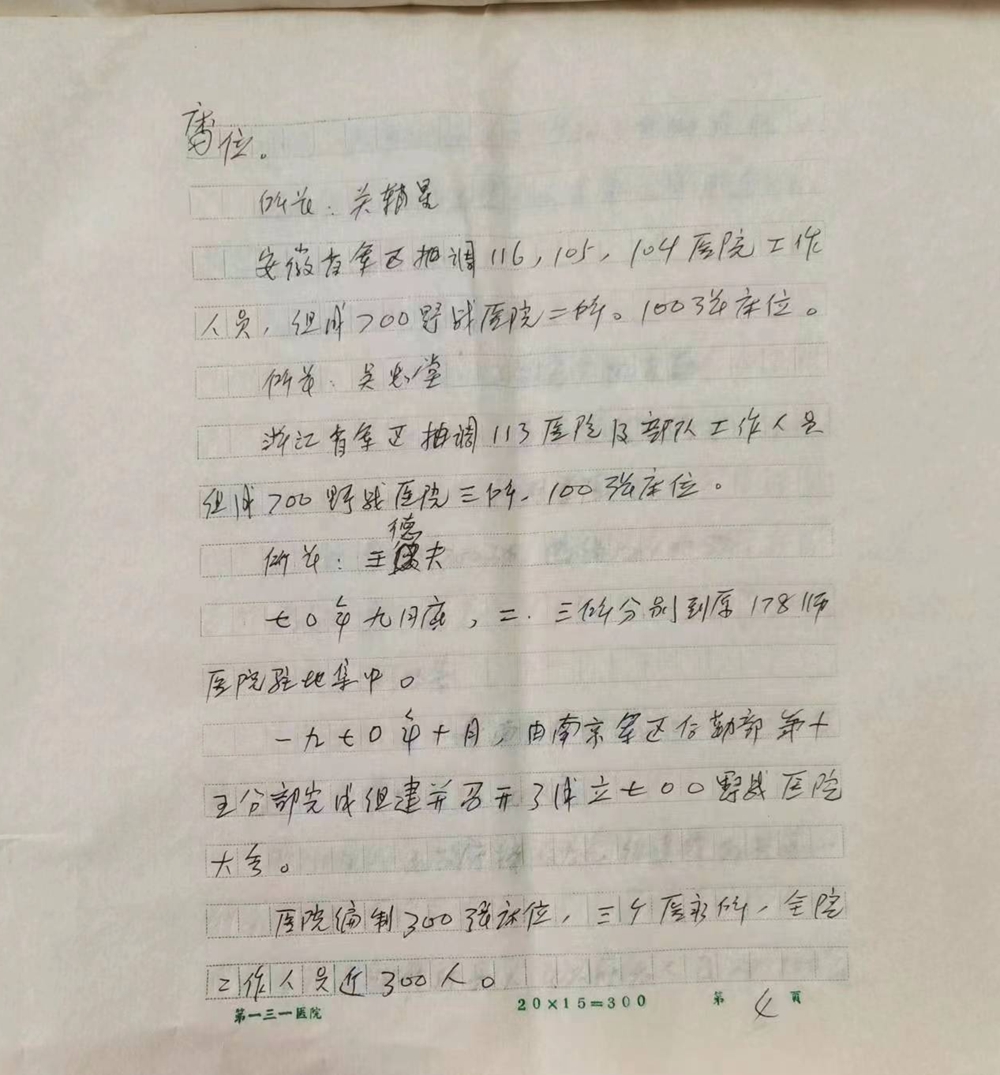 席位。
所长：关精星
安徽省军区抽调116，105，104医院工作
人员，组成700野战医院二所。100张床位。
所长：吴忠堂
浙江省军区抽调113医院及部队工作人员
组成700野战医院三所，100张床位。
所长：王德夫
七0年九月底，二．三所分别到原178师
医院驻地集中。
一九七0年十月，由南京军区后勤部第十
五分部完成组建并召开了成立七00野战医院
大会。
医院编制300张床位，三个医疗所，全院
工作人员近300人。
第一三一医院 20×15=300 第4页